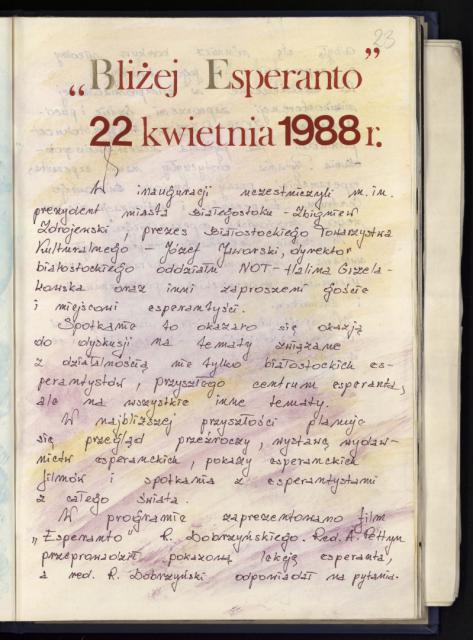 23
„Bliżej Esperanto”
22 kwietnia 1988 r.
W inauguracji uczestniczyli m.in.
prezydent miasta Białegostoku - Zbigniew
Zdrojewski, prezes Białostockiego Towarzystwa
Kulturalnego - Józef Jworski, dyrektor
białostockiego oddziału NOT - Halina Grzela-
kowska oraz inni zaproszeni goście
i miejscowi esperantyści.
Spotkanie to okazało się okazją
do dyskusji na tematy związane
z działalnością nie tylko białostockich es-
perantystów, przyszłego centrum esperanta,
ale na wszystkie inne tematy.
W najbliższej przyszłości planuje
się przegląd przeźroczy, wystawę wydaw-
nictw esperanckich, pokazy esperanckich
filmów i spotkania z esperantystami
z całego świata.
W programie zaprezentowano film
„Esperanto” R. Dobrzyńskiego. Red. A. Pettyn
przeprowadził pokazową lekcję esperanta,
a red. R. Dobrzyński odpowiadał na pytania.